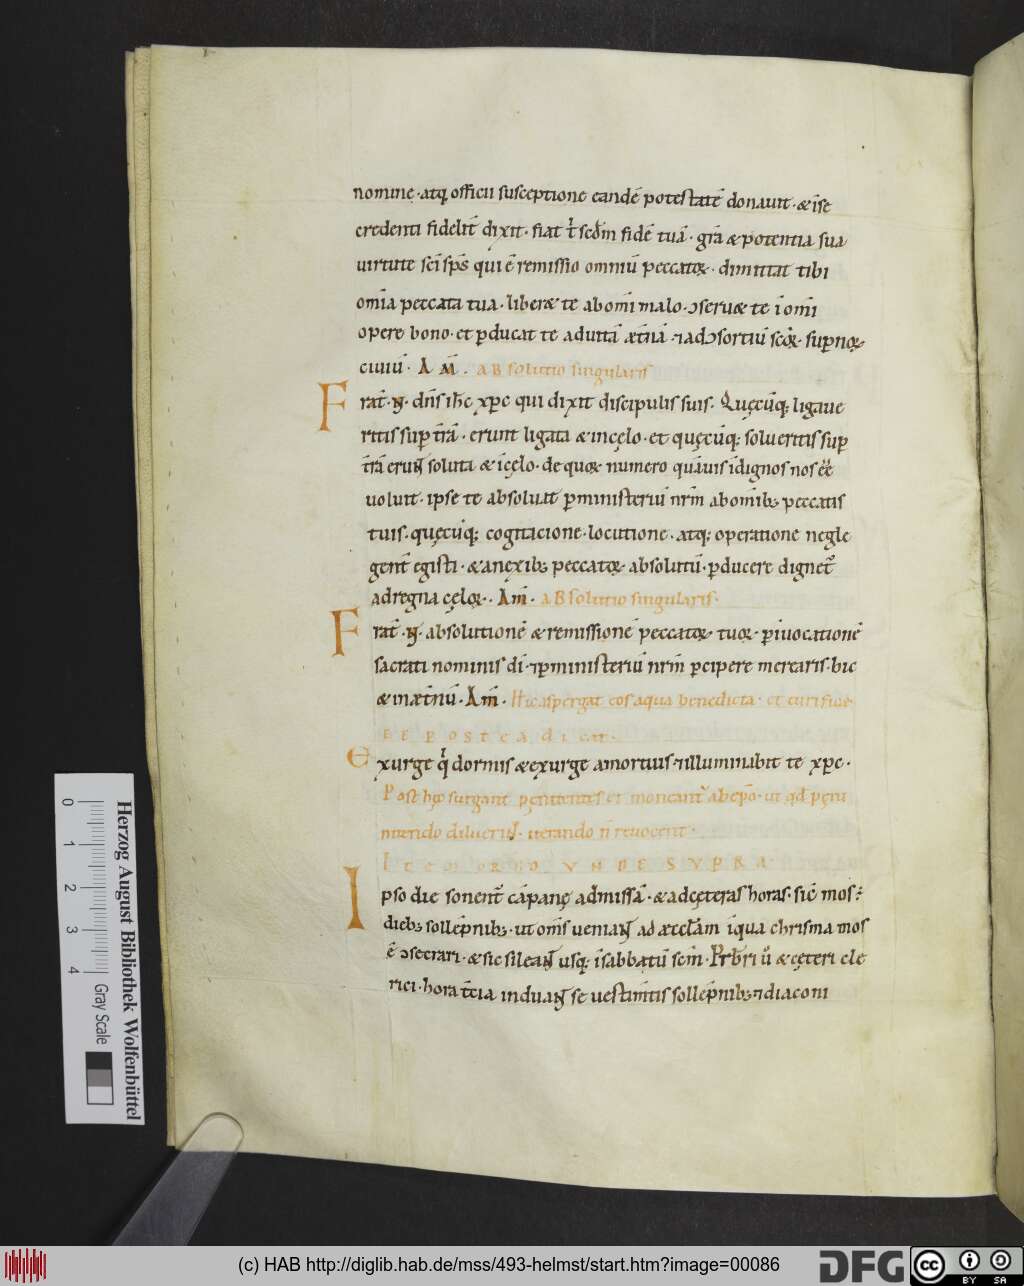 nomine · atq; officii susceptione eandē potestatē donauit · & ī se
credenti fidelit̄ dixit · fiat t̄ scdm̄ fidē tuā · gr̄a & potentia sua
uirtute sc̄i sp̄s qui ē remissio omniū peccatoꝝ · dimittat tibi
om̄ia peccata tua · liber& te ab om̄i malo · ɔseru& te ī om̄i
opere bono · et ꝑducat te ad uitā æt̄nā · ⁊ ad ɔsortiū scōꝝ supnoꝝ
ciuiū · AM̄ · ABsolutio singularis
Frat̄ · N̄ · dn̄s ih̄c xp̄c qui dixit discipulis suis · Quęcūq; ligaue
ritis sup t̄rā · erunt ligata & in cęlo · et quęcūq; solueritis sup
t̄rā erunt soluta & ī cęlo · de quoꝝ numero quāuis īdignos nos eē
uoluit · ipse te absoluat ꝑ ministeriū nr̄m ab om̄ib; peccatis
tuis · quęcūq; cogitacione · locutione · atq; operatione negle
gent̄ egisti · & a nexib; peccatoꝝ absolutū · ꝑducere dignet̄
ad regna cęloꝝ · Am̄ · ABsolutio singularis ·
Frat̄ · N̄ · absolutionē & remissionē peccatoꝝ tuoꝝ ꝑ īuocationē
sacrati nominis dī · ⁊ ꝑ ministeriū nr̄m ꝑcipere mercaris · hic
& in æt̄nū · Am̄ · Hic aspergat eos aqua benedicta · et turificæ
ET POSTEA dicat ·
Exurge q̇ dormis & exurge a mortuis · ⁊ illuminabit te xp̄c ·
Post hęc surgant penitentes et moneant̄ ab ep̄o · ut qd̄ pęni
tendo diluerunt · iterando n̄ reuocent ·
ITEM ORDO VNDE SVPRA
Ipso die sonent̄ cāpanę ad missā · & ad cęteras horas · sic mos ÷
dieb; sollēpnib; · ut om̄s ueniant ad æccl̄am ī qua chrisma mos
ē ɔsecrari · & sic sileant usq; ī sabbatū scm̄ · Prb̄ri ū & cęteri cle
rici · hora t̄cia induant se uestim̄tis sollēpnib; ⁊ diaconi
Herzog August Bibliothek Wolfenbüttel
0 1 2 3 4 Gray Scale
(c) HAB http://diglib.hab.de/mss/493-helmst/start.htm?image=00086
DFG cc BY SA